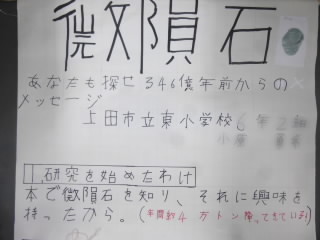 微隕石
あなたも探せる46億年前からの
メッセージ
上田市立東小学校6年2組
1 研究を始めたわけ
本で微隕石を知り、それに興味を
持ったから。(年間約4万トン降ってきている)